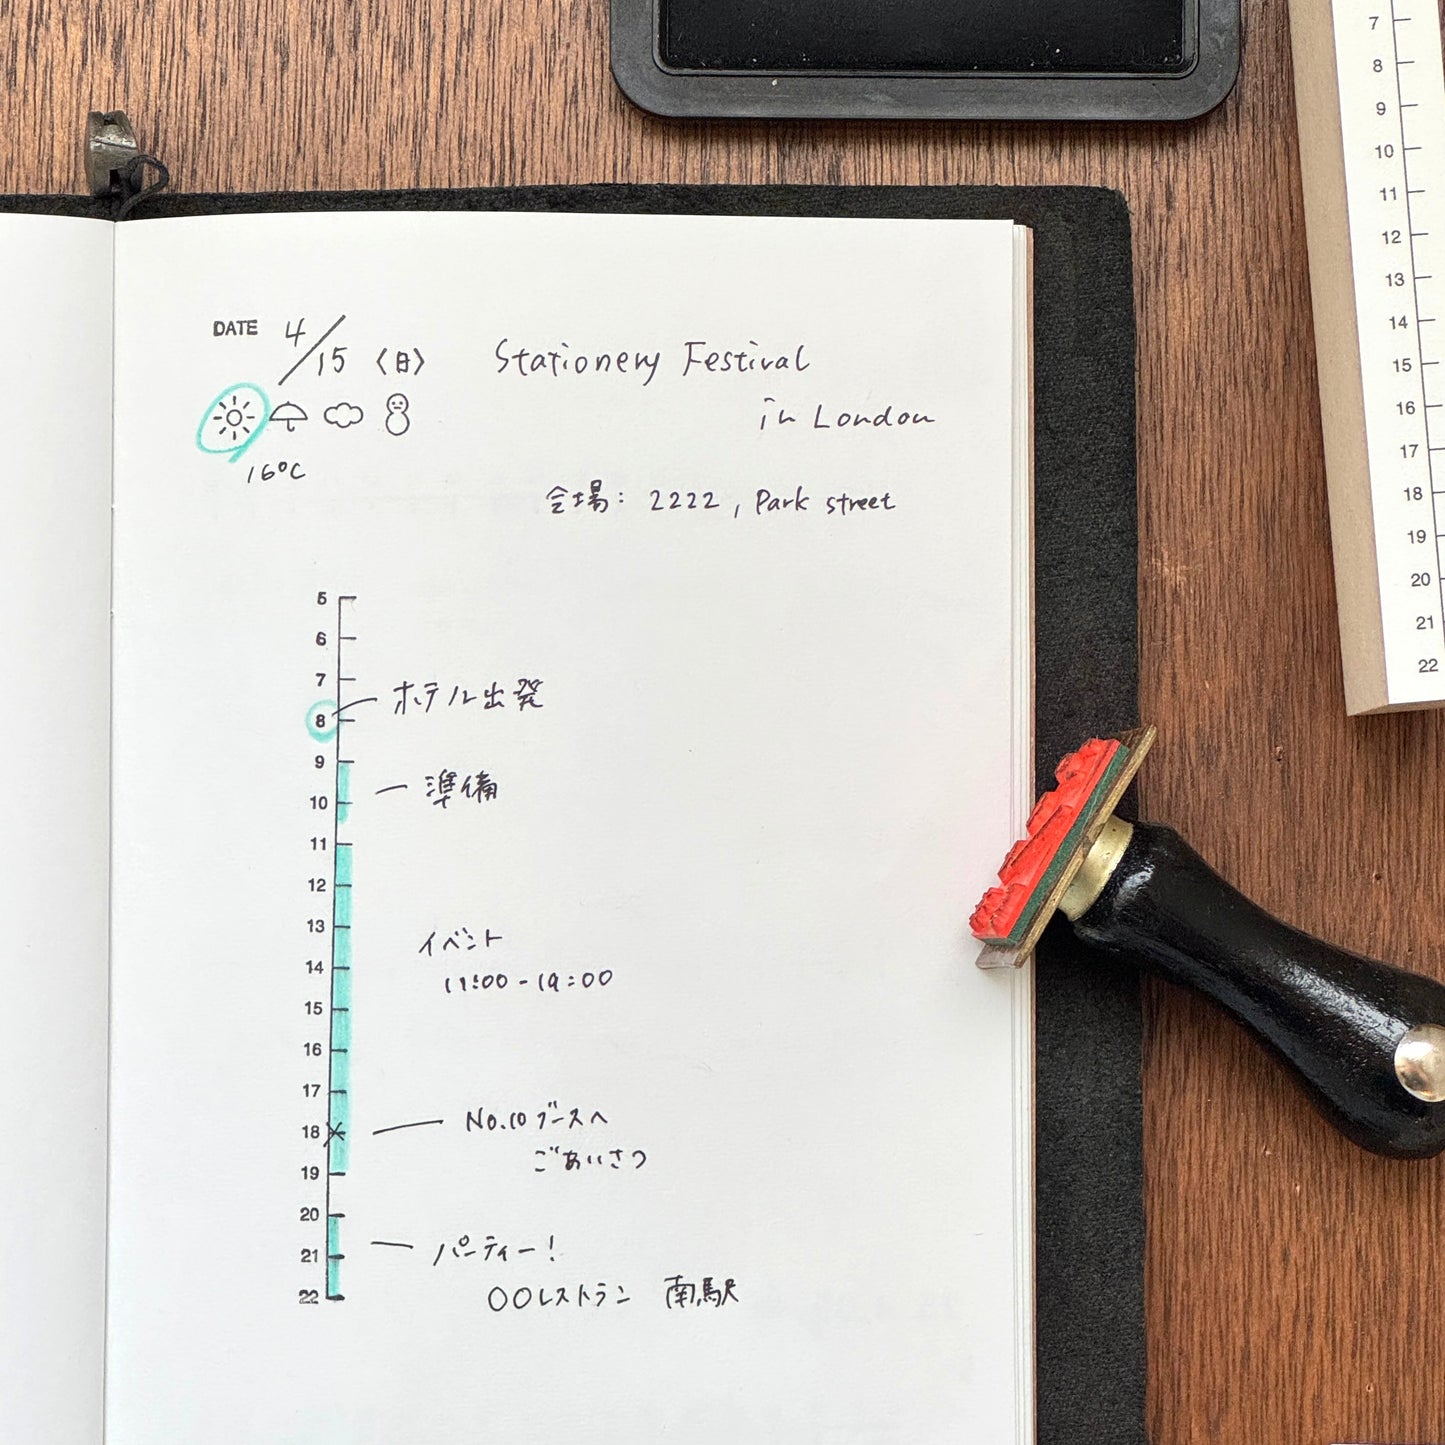 DATE 4/15〈日〉
Stationery Festival
in London
16°C
会場: 2222, Park street
5
6
7
8
ホテル出発
9
準備
10
11
12
13
イベント
14
11:00-19:00
15
16
17
18
No.10ブースへ
ごあいさつ
19
20
21
パーティー!
22
〇〇レストラン 南駅
7
8
9
10
11
12
13
14
15
16
17
18
19
20
21
22